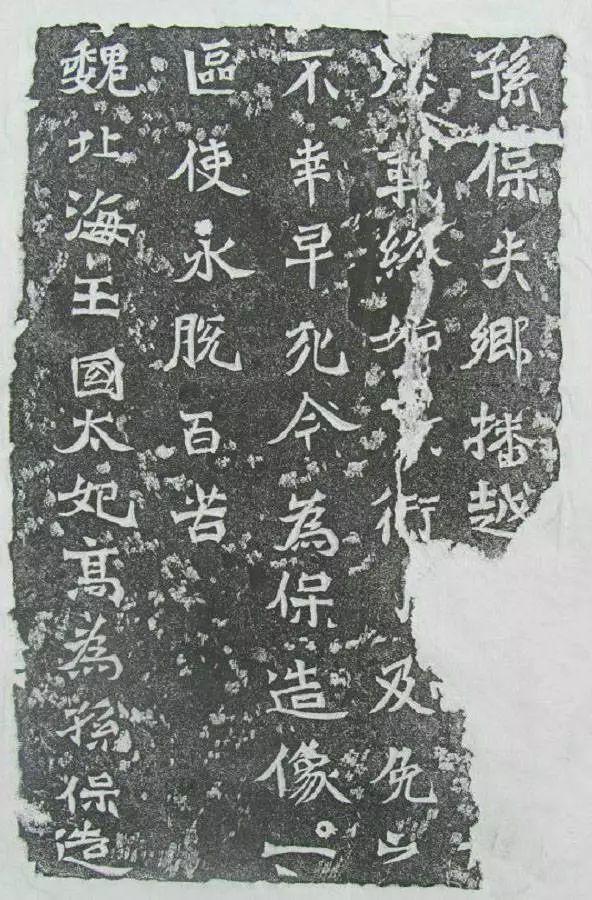 孫保失鄉播越
軄緣姤衍及免
不幸早死今為保造像一
區使永脫百苦
魏北海王國太妃高為孫保造